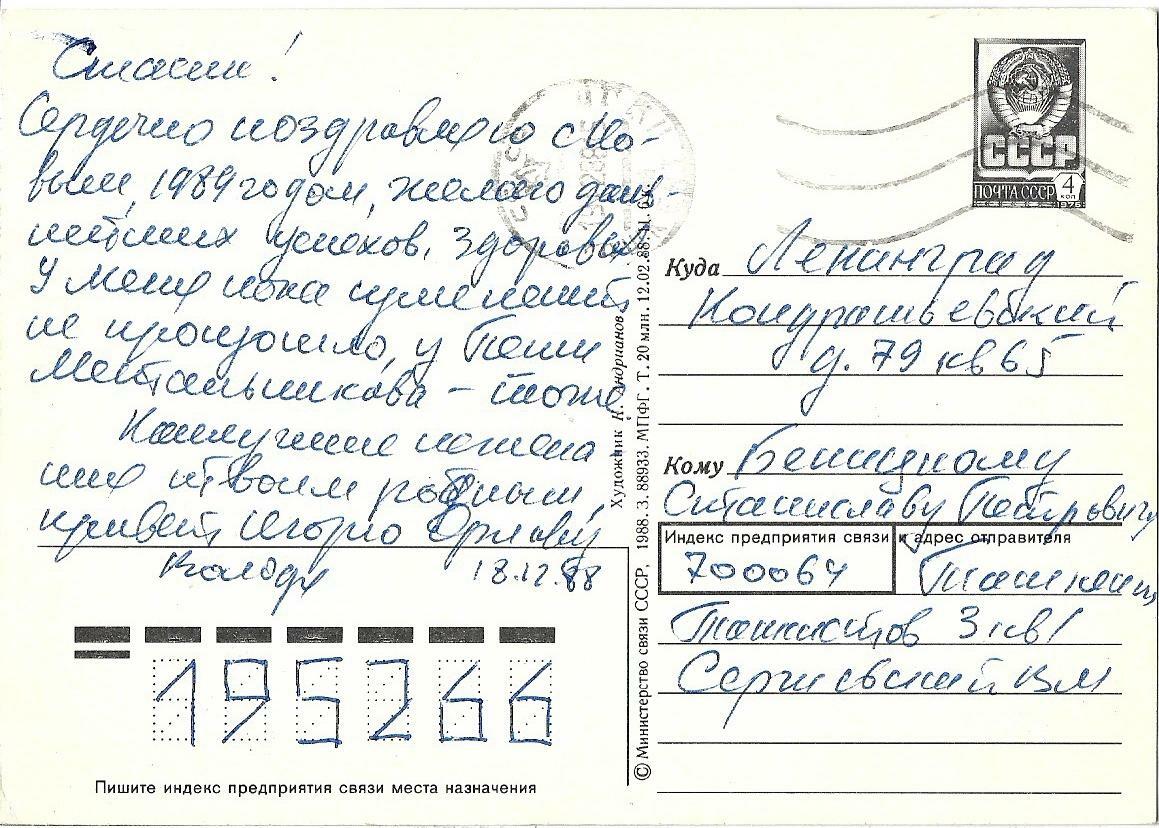 Стасик!
Сердечно поздравляю с Но-
вым, 1989 годом, желаю даль-
нейших успехов, здоровья
У меня пока изменений
не произошло, у Паши
Метальникова – тоже
Наилучшие пожела
ния твоим родным,
привет Игорю Орлову
Володя 18.12.88
СССР
ПОЧТА СССР 4 коп
1976
Куда Ленинград
Кондратьевский
д. 79 кв 65
Кому Беницкому
Станиславу Петровичу
Индекс предприятия связи и адрес отправителя
700064 Ташкент
Танкистов 3 кв 1
Сергиевский ВМ
195266
Пишите индекс предприятия связи места назначения
© Министерство связи СССР, 1988. З. 88933. МПФГ. Т. 20 млн. 12.02.88.
Художник К. Андрианов